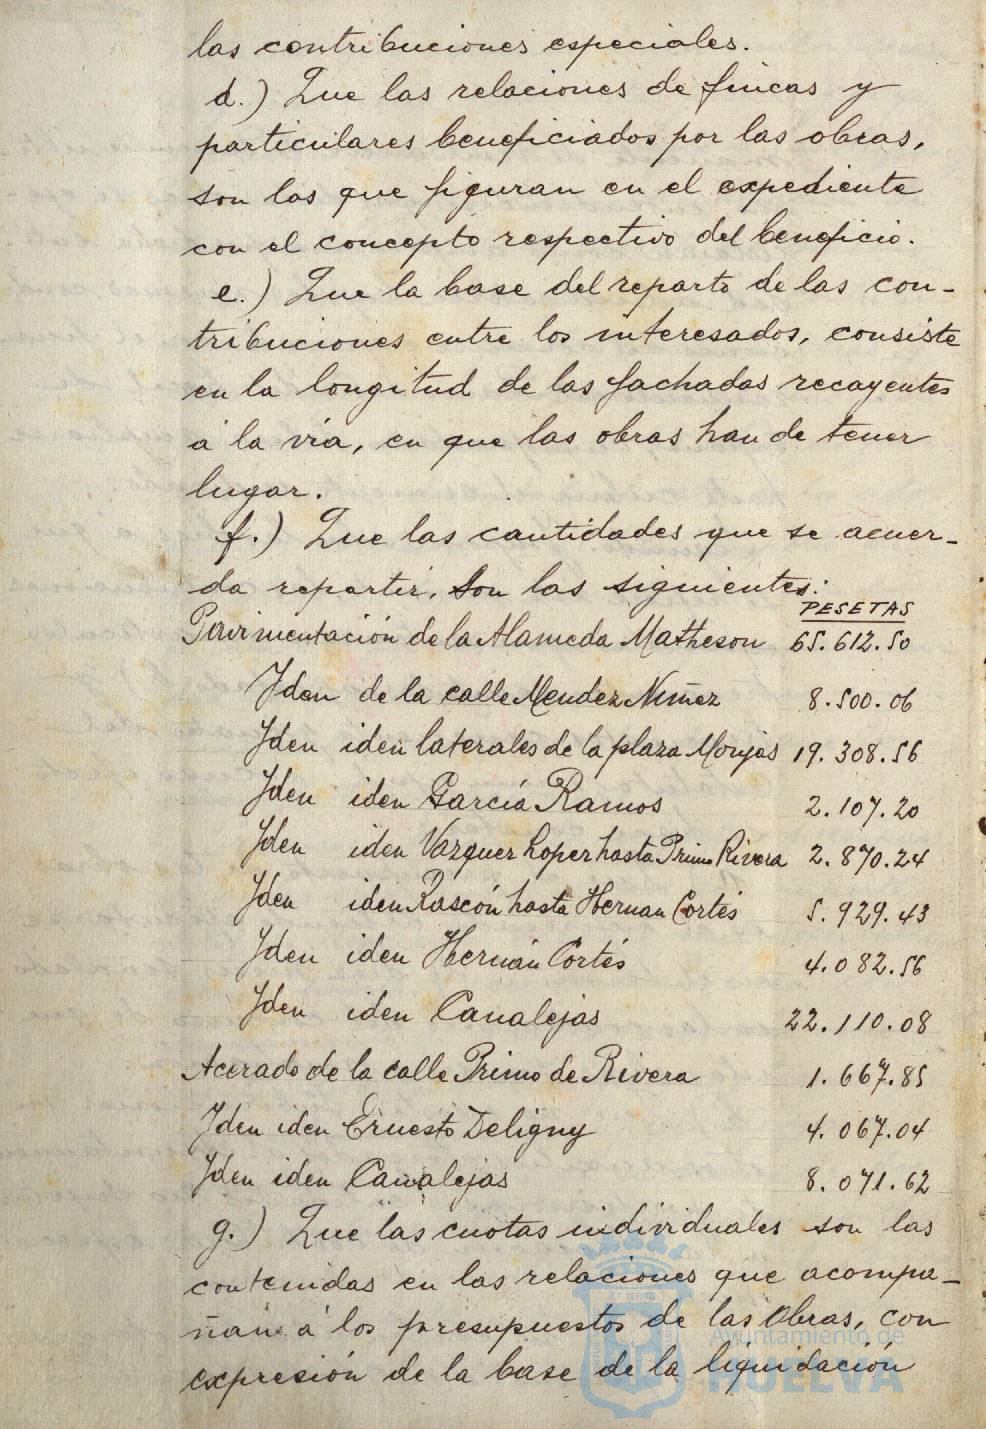 las contribuciones especiales.
d.) Que las relaciones de fincas y
particulares beneficiados por las obras,
son las que figuran en el expediente
con el concepto respectivo del beneficio.
e.) Que la base del reparto de las con-
tribuciones entre los interesados, consiste
en la longitud de las fachadas recayentes
á la via, en que las obras han de tener
lugar.
f.) Que las cantidades que se acuer-
da repartir, son las siguientes:
PESETAS
Pavimentación de la Alameda Matheson 65.612.50
Iden de la calle Mendez Nuñez 8.500.06
Iden iden laterales de la plaza Monjas 19.308.56
Iden iden García Ramos 2.107.20
Iden iden Vazquez Lopez hasta Primo Rivera 2.870.24
Iden iden Rascón hasta Hernan Cortés 5.929.43
Iden iden Hernán Cortés 4.082.56
Iden iden Canalejas 22.110.08
Acerado de la calle Primo de Rivera 1.667.85
Iden iden Ernesto Deligny 4.067.04
Iden iden Canalejas 8.071.62
g.) Que las cuotas individuales son las
contenidas en las relaciones que acompa-
ñan á los presupuestos de las Obras, con
expresión de la base de la liquidación
Ayuntamiento de
HUELVA